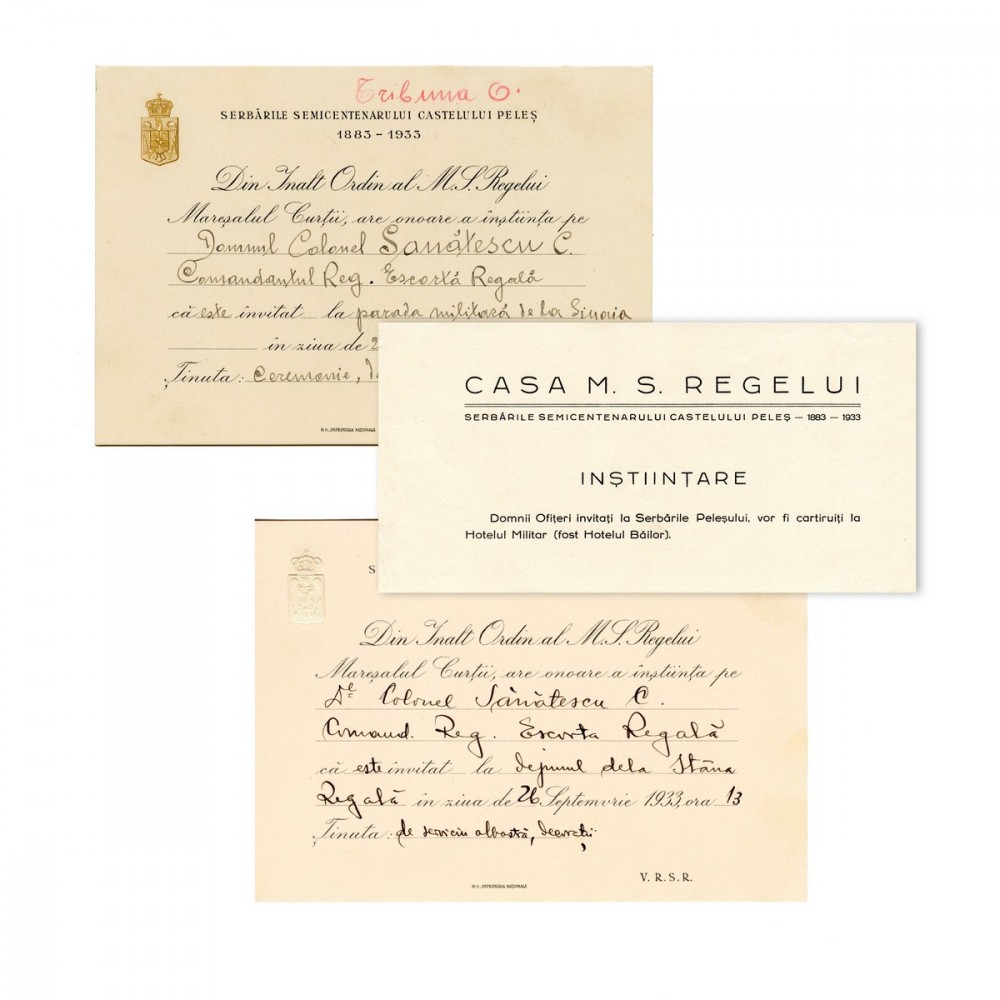 Tribuna O.
SERBĂRILE SEMICENTENARULUI CASTELULUI PELEȘ
1883 - 1933
Din Inalt Ordin al M.S. Regelui
Mareșalul Curții, are onoare a înștiința pe
Domnul Colonel Sanătescu C.
Comandantul Reg. Escortă Regală
că este invitat la parada militară de la Sinaia
în ziua de 2
Ținuta: Ceremonie,
M.O., IMPRIMERIA NAȚIONALĂ
CASA M. S. REGELUI
SERBĂRILE SEMICENTENARULUI CASTELULUI PELEȘ — 1883 — 1933
INȘTIINȚARE
Domnii Ofițeri invitați la Serbările Peleșului, vor fi cartiruiți la
Hotelul Militar (fost Hotelul Băilor).
S
Din Inalt Ordin al M.S. Regelui
Mareșalul Curții, are onoare a înștiința pe
Dl Colonel Sănătescu C.
Comand. Reg. Escorta Regală
că este invitat la dejunul dela Stâna
Regală în ziua de 26 Septemvrie 1933, ora 13
Ținuta: de serviciu albastră, decorații
V. R. S. R.
M.O., IMPRIMERIA NAȚIONALĂ